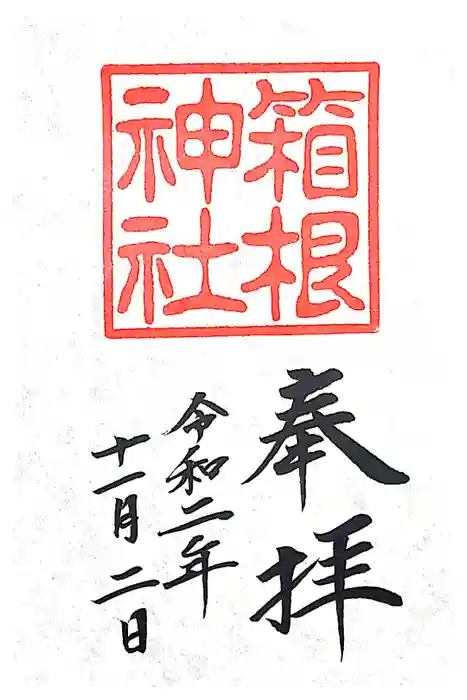 箱根
神社
奉拝
令和二年
十一月二日